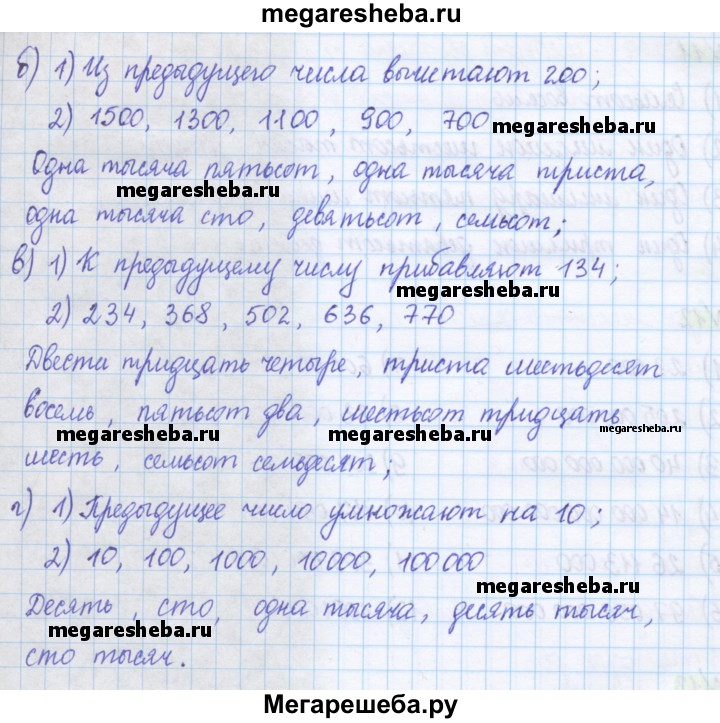 megaresheba.ru
б) 1) Из предыдущего числа вычитают 200;
2) 1500, 1300, 1100, 900, 700
megaresheba.ru
Одна тысяча пятьсот, одна тысяча триста,
megaresheba.ru
одна тысяча сто, девятьсот, семьсот;
в) 1) К предыдущему числу прибавляют 134;
megaresheba.ru
2) 234, 368, 502, 636, 770
Двести тридцать четыре, триста шестьдесят
восемь, пятьсот два, шестьсот тридцать
megaresheba.ru megaresheba.ru megaresheba.ru
шесть, семьсот семьдесят;
г) 1) Предыдущее число умножают на 10;
2) 10, 100, 1000, 10000, 100 000
megaresheba.ru
Десять, сто, одна тысяча, десять тысяч,
megaresheba.ru
сто тысяч.
Мегарешеба.ру